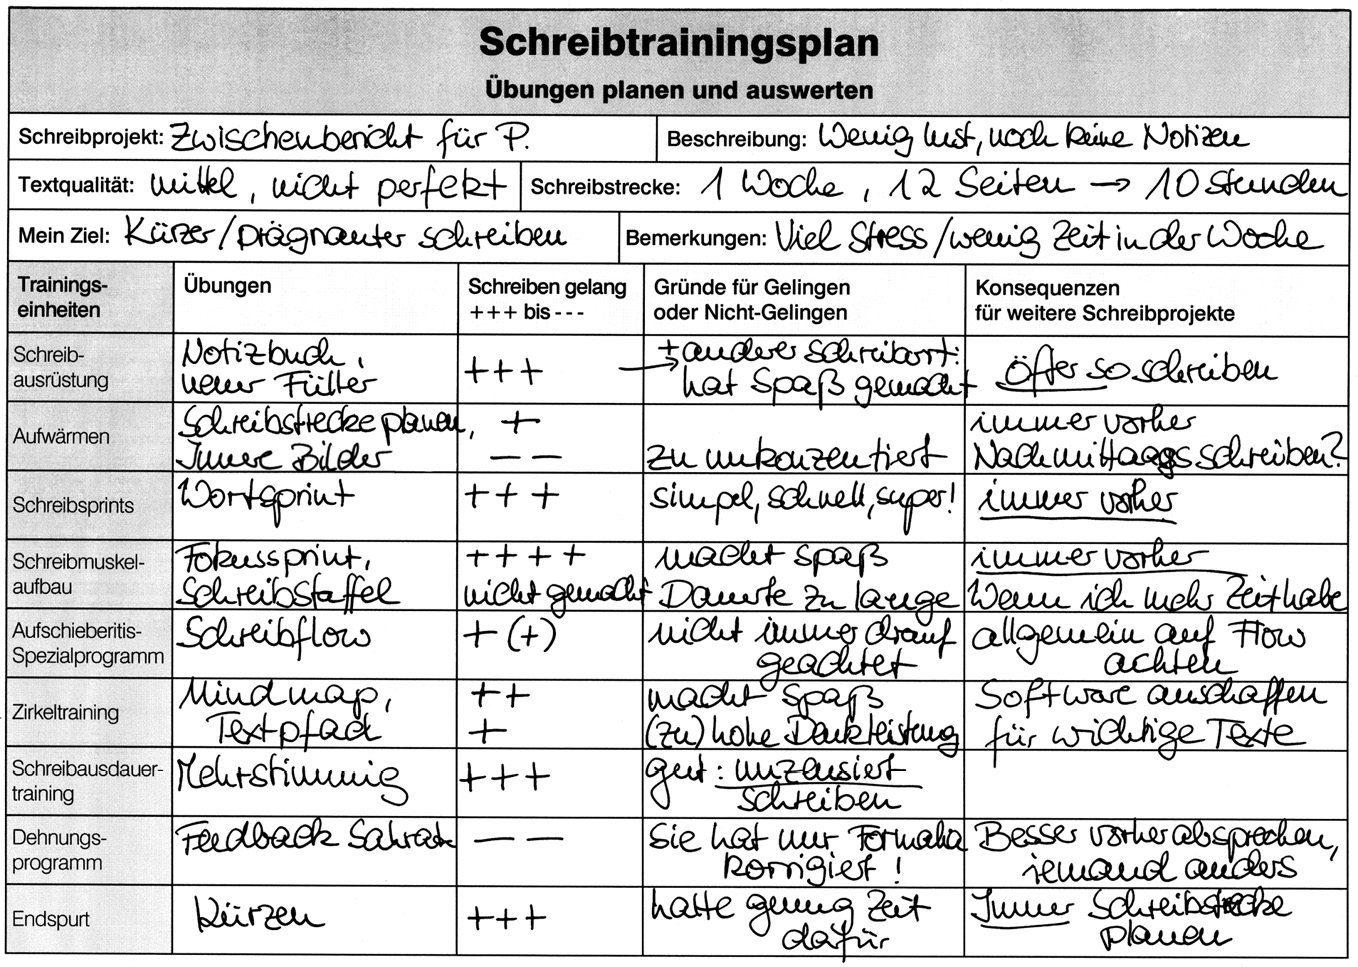 Schreibtrainingsplan
Übungen planen und auswerten
Schreibprojekt: Zwischenbericht für P.
Beschreibung: Wenig Lust, noch keine Notizen
Textqualität: mittel, nicht perfekt
Schreibstrecke: 1 Woche, 12 Seiten → 10 Stunden
Mein Ziel: Kürzer/prägnanter schreiben
Bemerkungen: Viel Stress/wenig Zeit in der Woche
Trainings-
einheiten
Übungen
Schreiben gelang
+++ bis ---
Gründe für Gelingen
oder Nicht-Gelingen
Konsequenzen
für weitere Schreibprojekte
Schreib-
ausrüstung
Notizbuch,
neuer Füller
+++
→ + anderer Schreibort:
hat Spaß gemacht
öfter so schreiben
Aufwärmen
Schreibstrecke planen,
Innere Bilder
+
– –
zu unkonzentiert
immer vorher
Nachmittags schreiben?
Schreibsprints
Wortsprint
+++
simpel, schnell, super!
immer vorher
Schreibmuskel-
aufbau
Fokussprint,
Schreibstaffel
++++
nicht gemacht
macht Spaß
Dauerte zu lange
immer vorher
Wenn ich mehr Zeit habe
Aufschieberitis-
Spezialprogramm
Schreibflow
+(+)
nicht immer drauf
geachtet
allgemein auf Flow
achten
Zirkeltraining
Mindmap,
Textpfad
++
+
macht Spaß
(zu) hohe Denkleistung
Software anschaffen
für wichtige Texte
Schreibausdauer-
training
Mehrstimmig
+++
gut: unzensiert
schreiben
Dehnungs-
programm
Feedback
– –
Sie hat nur Formalia
korrigiert!
Besser vorher absprechen,
jemand anders
Endspurt
Kürzen
+++
hatte genug Zeit
dafür
Immer Schreibstrecke
planen